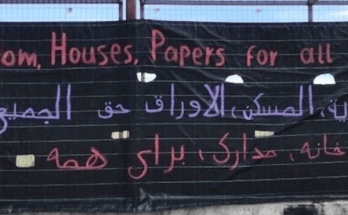 om, Houses, Papers for all
ية، المسكن، الاوراق حق الجميع
خانه، مدارک، برای همه